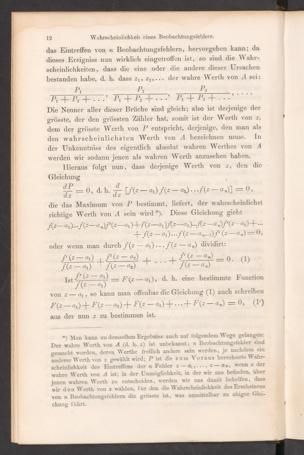 12 Wahrscheinlichkeit eines Beobachtungsfehlers.
das Eintreffen von n Beobachtungsfehlern, hervorgehen kann; da
dieses Ereigniss nun wirklich eingetroffen ist, so sind die Wahr-
scheinlichkeiten, dass die eine oder die andere dieser Ursachen
bestanden habe, d. h. dass z₁, z₂, ... der wahre Werth von A sei:
P₁ / (P₁ + P₂ + ...), P₂ / (P₁ + P₂ + ...), P₃ / (P₁ + P₂ + ...), ....
Die Nenner aller dieser Brüche sind gleich; also ist derjenige der
grösste, der den grössten Zähler hat, somit ist der Werth von z,
dem der grösste Werth von P entspricht, derjenige, den man als
den wahrscheinlichsten Werth von A bezeichnen muss. In
der Unkenntniss des eigentlich absolut wahren Werthes von A
werden wir sodann jenen als wahren Werth anzusehen haben.
Hieraus folgt nun, dass derjenige Werth von z, den die
Gleichung
dP/dz = 0, d. h. d/dz [f(z—a₁) f(z—a₂)...f(z—aₙ)] = 0,
die das Maximum von P bestimmt, liefert, der wahrscheinlichst
richtige Werth von A sein wird*). Diese Gleichung giebt
f(z—a₂)...f(z—aₙ)f'(z—a₁)+f(z—a₁)f(z—a₃)...f(z—aₙ)f'(z—a₂)+...
+ f(z—a₁)...f(z—aₙ₋₁)f'(z—aₙ)=0,
oder wenn man durch f(z — a₁)...f(z — aₙ) dividirt:
f'(z — a₁)/f(z — a₁) + f'(z — a₂)/f(z — a₂) + ... + f'(z — aₙ)/f(z — aₙ) = 0. (1)
Ist f'(z — a₁)/f(z — a₁) = F(z — a₁), d. h. eine bestimmte Function
von z — a₁, so kann man offenbar die Gleichung (1) auch schreiben
F(z — a₁) + F(z — a₂) + F(z — a₃) + ... + F(z — aₙ) = 0, (1')
aus der nun z zu bestimmen ist.
*) Man kann zu demselben Ergebnisse auch auf folgendem Wege gelangen:
Der wahre Werth von A (d. h. z) ist unbekannt; n Beobachtungsfehler sind
gemacht worden, deren Werthe freilich anders sein werden, je nachdem ein
anderer Werth von z gewählt wird; P ist die zum Voraus berechnete Wahr-
scheinlichkeit des Eintreffens der n Fehler z — a₁, ..., z — aₙ, wenn z der
wahre Werth von A ist; in der Unmöglichkeit, in der wir uns befinden, über
jenen wahren Werth zu entscheiden, werden wir uns damit behelfen, dass
wir den Werth von z wählen, für den die Wahrscheinlichkeit des Erscheinens
von n Beobachtungsfehlern die grösste ist, was unmittelbar zu obiger Glei-
chung führt.